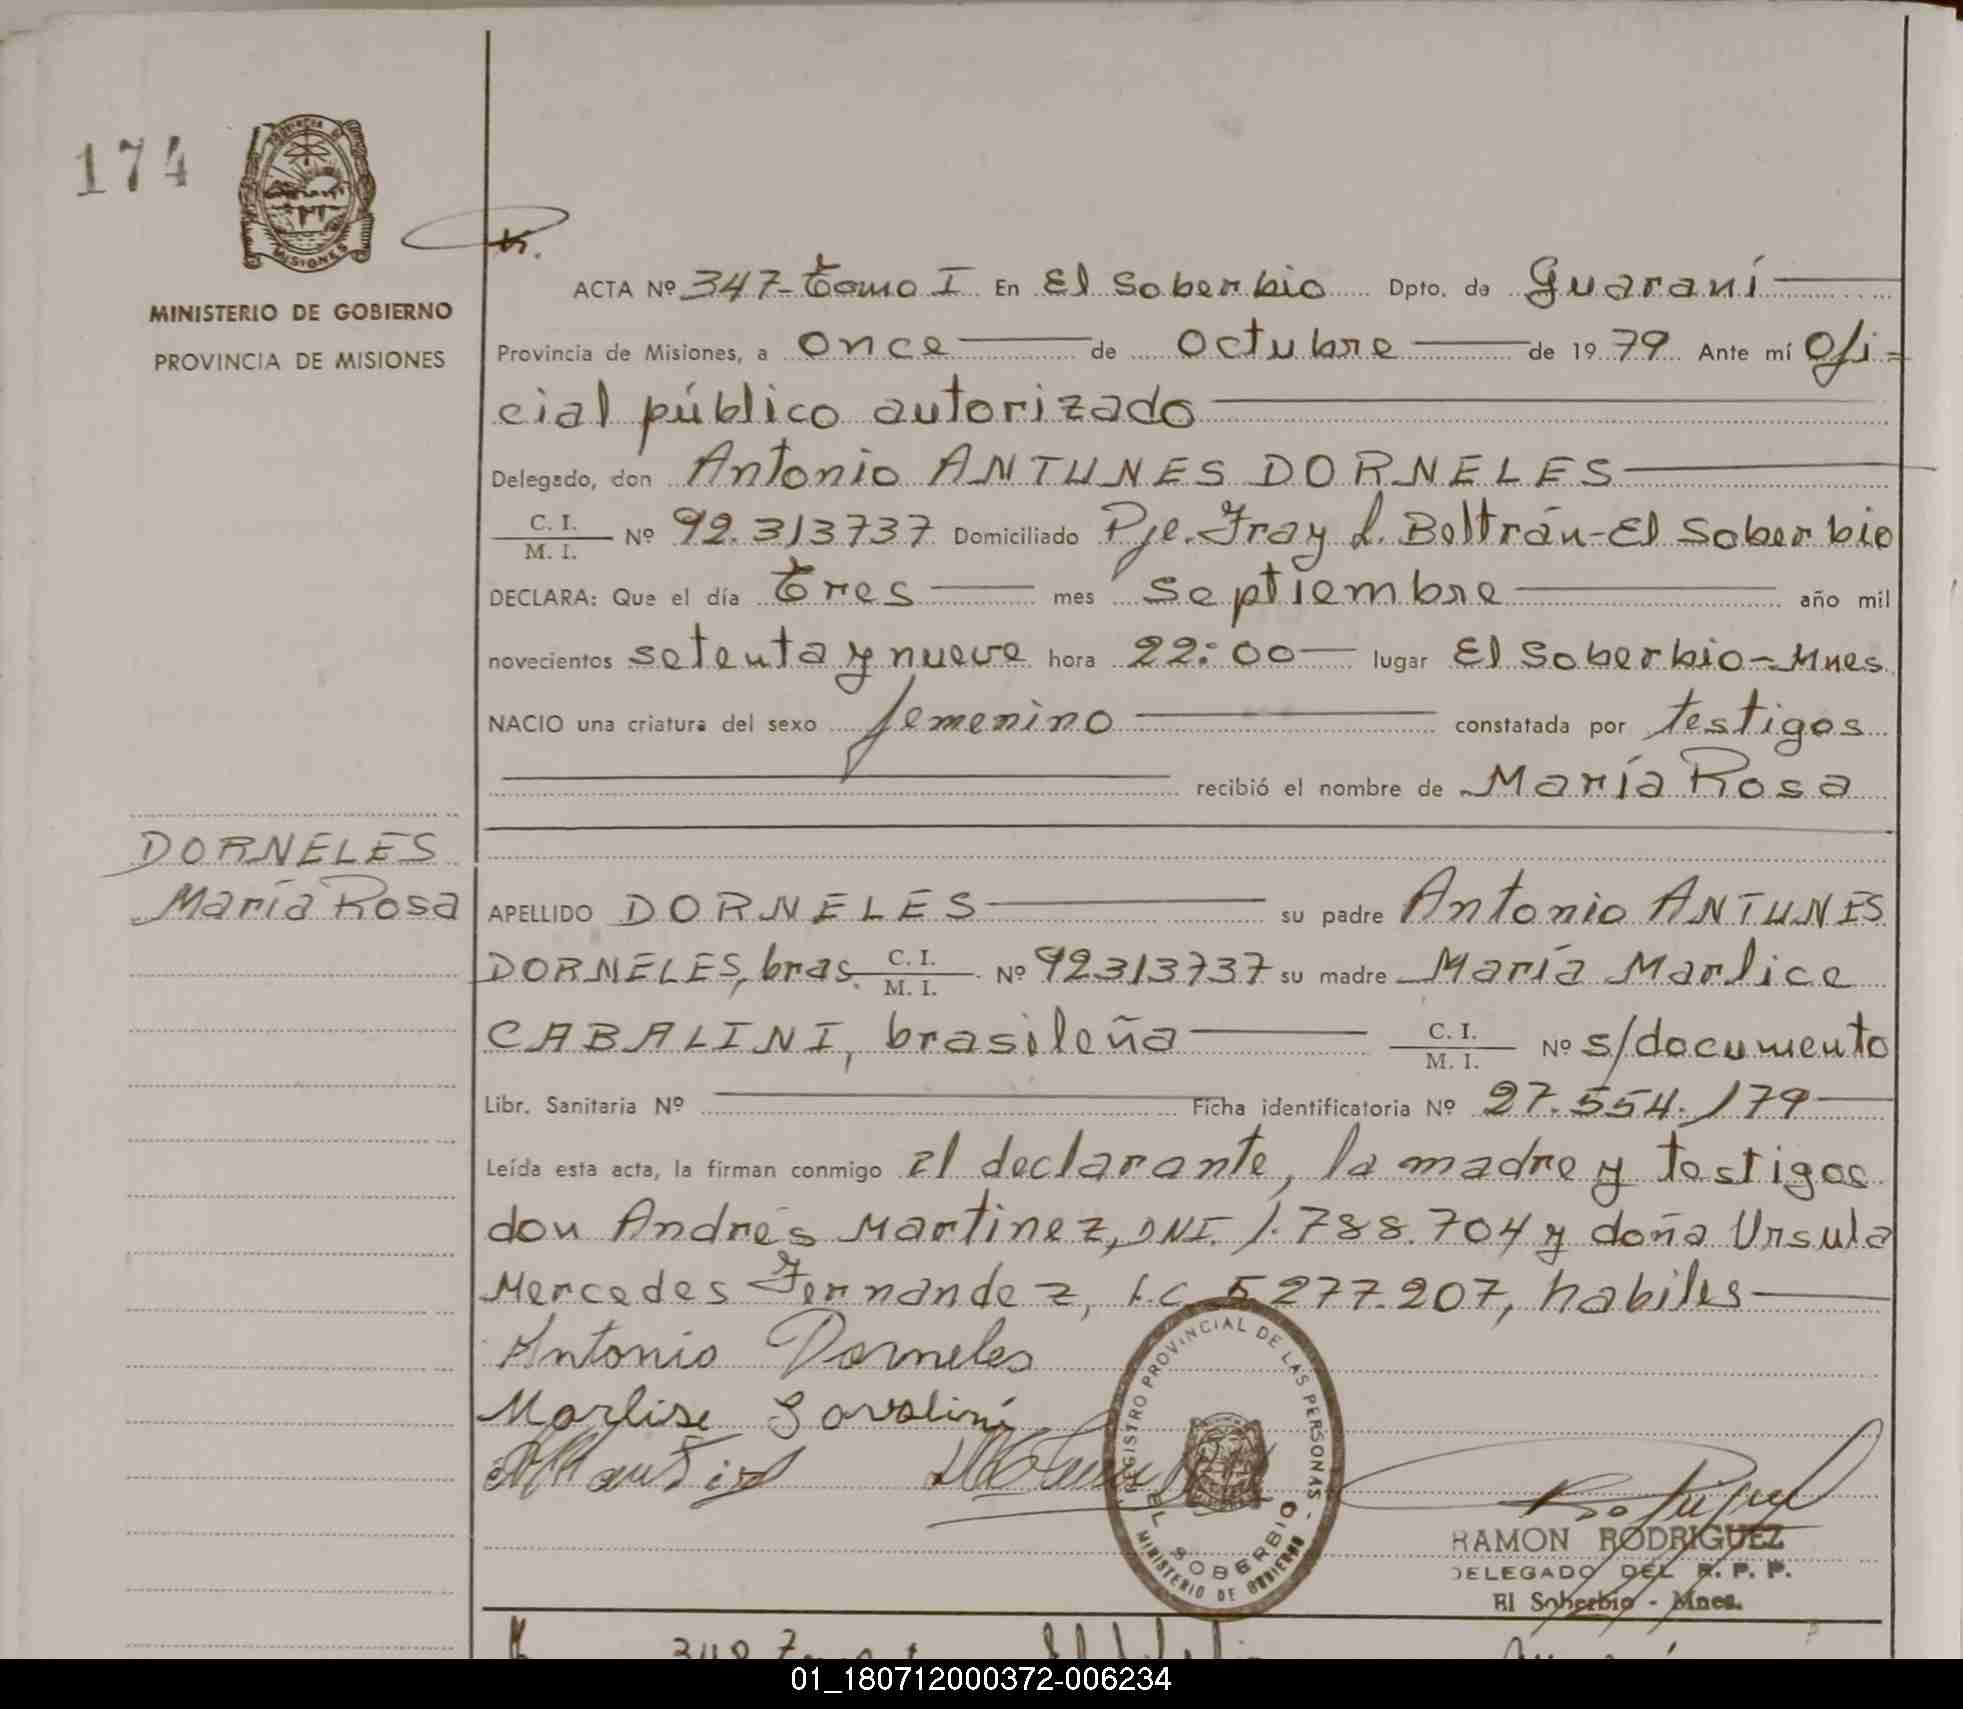 174
PROVINCIA DE
MISIONES
MINISTERIO DE GOBIERNO
PROVINCIA DE MISIONES
ACTA Nº 347-Tomo I En El Soberbio Dpto. de Guaraní
Provincia de Misiones, a once de octubre de 1979 Ante mí Ofi-
cial público autorizado
Delegado, don Antonio ANTUNES DORNELES
C. I.
M. I. Nº 92.313737 Domiciliado Pje. Fray L. Beltrán-El Soberbio
DECLARA: Que el día tres mes septiembre año mil
novecientos setenta y nueve hora 22:00 lugar El Soberbio-Mnes.
NACIO una criatura del sexo femenino constatada por testigos
recibió el nombre de María Rosa
DORNELES
María Rosa
APELLIDO DORNELES su padre Antonio ANTUNES
DORNELES, bras. C. I.
M. I. Nº 92313737 su madre María Marlice
CABALINI, brasileña C. I.
M. I. Nº s/documento
Libr. Sanitaria Nº Ficha identificatoria Nº 27.554./79
Leída esta acta, la firman conmigo el declarante, la madre y testigos
don Andrés Martinez, DNI. 1.788.704 y doña Ursula
Mercedes Fernandez, L.C. 5.277.207, habiles
Antonio Dorneles
Marlise Gavalini
REGISTRO PROVINCIAL DE LAS PERSONAS -
EL SOBERBIO
MINISTERIO DE GOBIERNO
RAMON RODRIGUEZ
DELEGADO DEL R. P. P.
El Soberbio - Mnes.
01_180712000372-006234